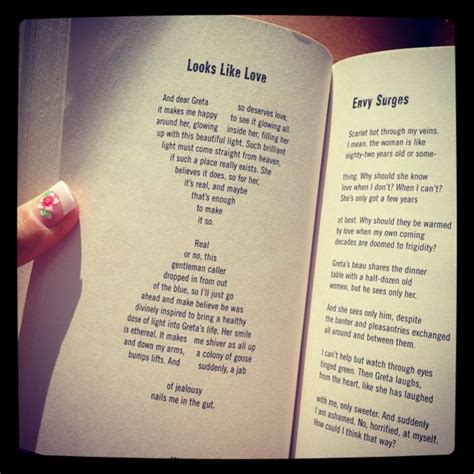 Looks Like Love
And dear Greta so deserves love,
it makes me happy to see it glowing all
around her, glowing inside her, filling her
up with this beautiful light. Such brilliant
light must come straight from heaven,
if such a place really exists. She
believes it does, so for her,
it's real, and maybe
that's enough
to make
it so.
Real
or no, this
gentleman caller
dropped in from out
of the blue, so I'll just go
ahead and make believe he was
divinely inspired to bring a healthy
dose of light into Greta's life. Her smile
is ethereal. It makes me shiver as all up
and down my arms, a colony of goose
bumps lifts. And suddenly, a jab
of jealousy
nails me in the gut.
Envy Surges
Scarlet hot through my veins.
I mean, the woman is like
eighty-two years old or some-
thing. Why should she know
love when I don't? When I can't?
She's only got a few years
at best. Why should they be warmed
by love when my own coming
decades are doomed to frigidity?
Greta's beau shares the dinner
table with a half-dozen old
women, but he sees only her.
And she sees only him, despite
the banter and pleasantries exchanged
all around and between them.
I can't help but watch through eyes
fringed green. Then Greta laughs,
from the heart, like she has laughed
with me, only sweeter. And suddenly
I am ashamed. No, horrified, at myself.
How could I think that way?